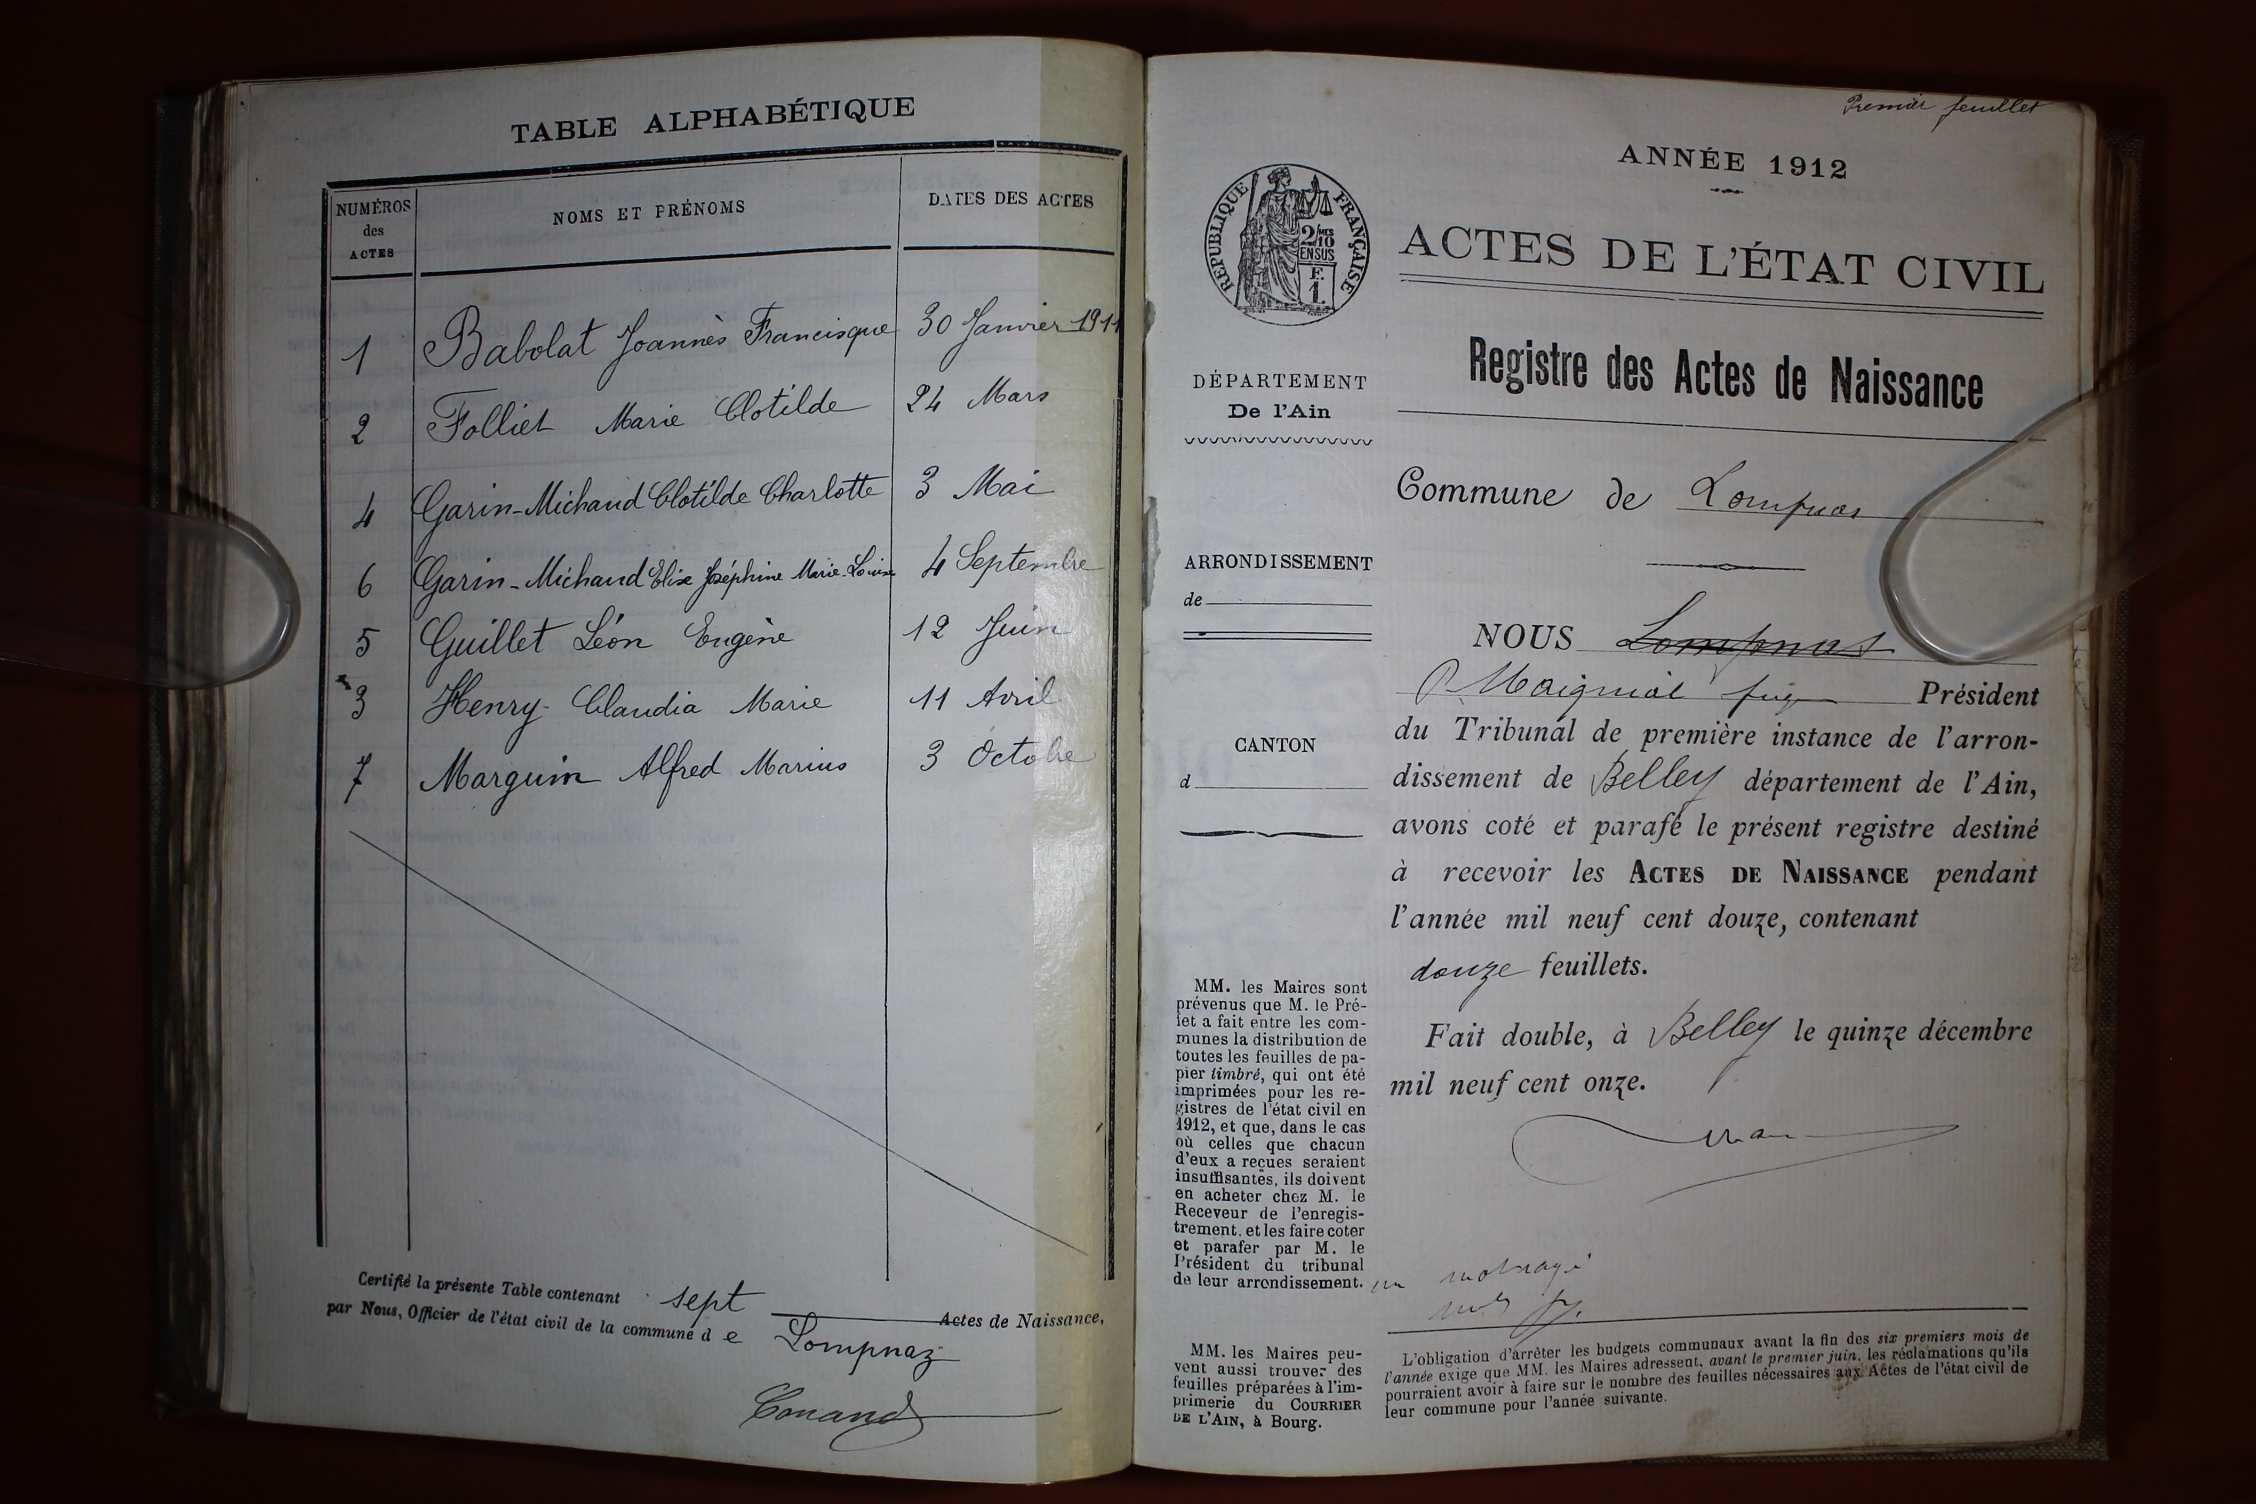 TABLE ALPHABÉTIQUE
NUMÉROS des ACTES
NOMS ET PRÉNOMS
DATES DES ACTES
1 Babolat Joannès Francisque 30 Janvier 1911
2 Folliet Marie Clotilde 24 Mars
4 Garin-Michaud Clotilde Charlotte 3 Mai
6 Garin-Michaud Elise Joséphine Marie-Louise 4 Septembre
5 Guillet Léon Eugène 12 Juin
3 Henry Claudia Marie 11 Avril
7 Marguin Alfred Marius 3 Octobre
Certifié la présente Table contenant sept Actes de Naissance,
par Nous, Officier de l'état civil de la commune d e Lompnaz
Conand
Premier feuillet
ANNÉE 1912
RÉPUBLIQUE FRANÇAISE
2/10 MES
EN SUS
F.
1.
ACTES DE L'ÉTAT CIVIL
Registre des Actes de Naissance
DÉPARTEMENT
De l'Ain
Commune de Lompnas
ARRONDISSEMENT
de
NOUS Lompnas
Président
du Tribunal de première instance de l'arron-
dissement de Belley département de l'Ain,
avons coté et parafé le présent registre destiné
à recevoir les ACTES DE NAISSANCE pendant
l'année mil neuf cent douze, contenant
douze feuillets.
Fait double, à Belley le quinze décembre
mil neuf cent onze.
CANTON
d
MM. les Maires sont
prévenus que M. le Pré-
fet a fait entre les com-
munes la distribution de
toutes les feuilles de pa-
pier timbré, qui ont été
imprimées pour les re-
gistres de l'état civil en
1912, et que, dans le cas
où celles que chacun
d'eux a reçues seraient
insuffisantes, ils doivent
en acheter chez M. le
Receveur de l'enregis-
trement. et les faire coter
et parafer par M. le
Président du tribunal
de leur arrondissement.
MM. les Maires peu-
vent aussi trouver des
feuilles préparées à l'im-
primerie du COURRIER
DE L'AIN, à Bourg.
L'obligation d'arrêter les budgets communaux avant la fin des six premiers mois de
l'année exige que MM. les Maires adressent, avant le premier juin, les réclamations qu'ils
pourraient avoir à faire sur le nombre des feuilles nécessaires aux Actes de l'état civil de
leur commune pour l'année suivante.